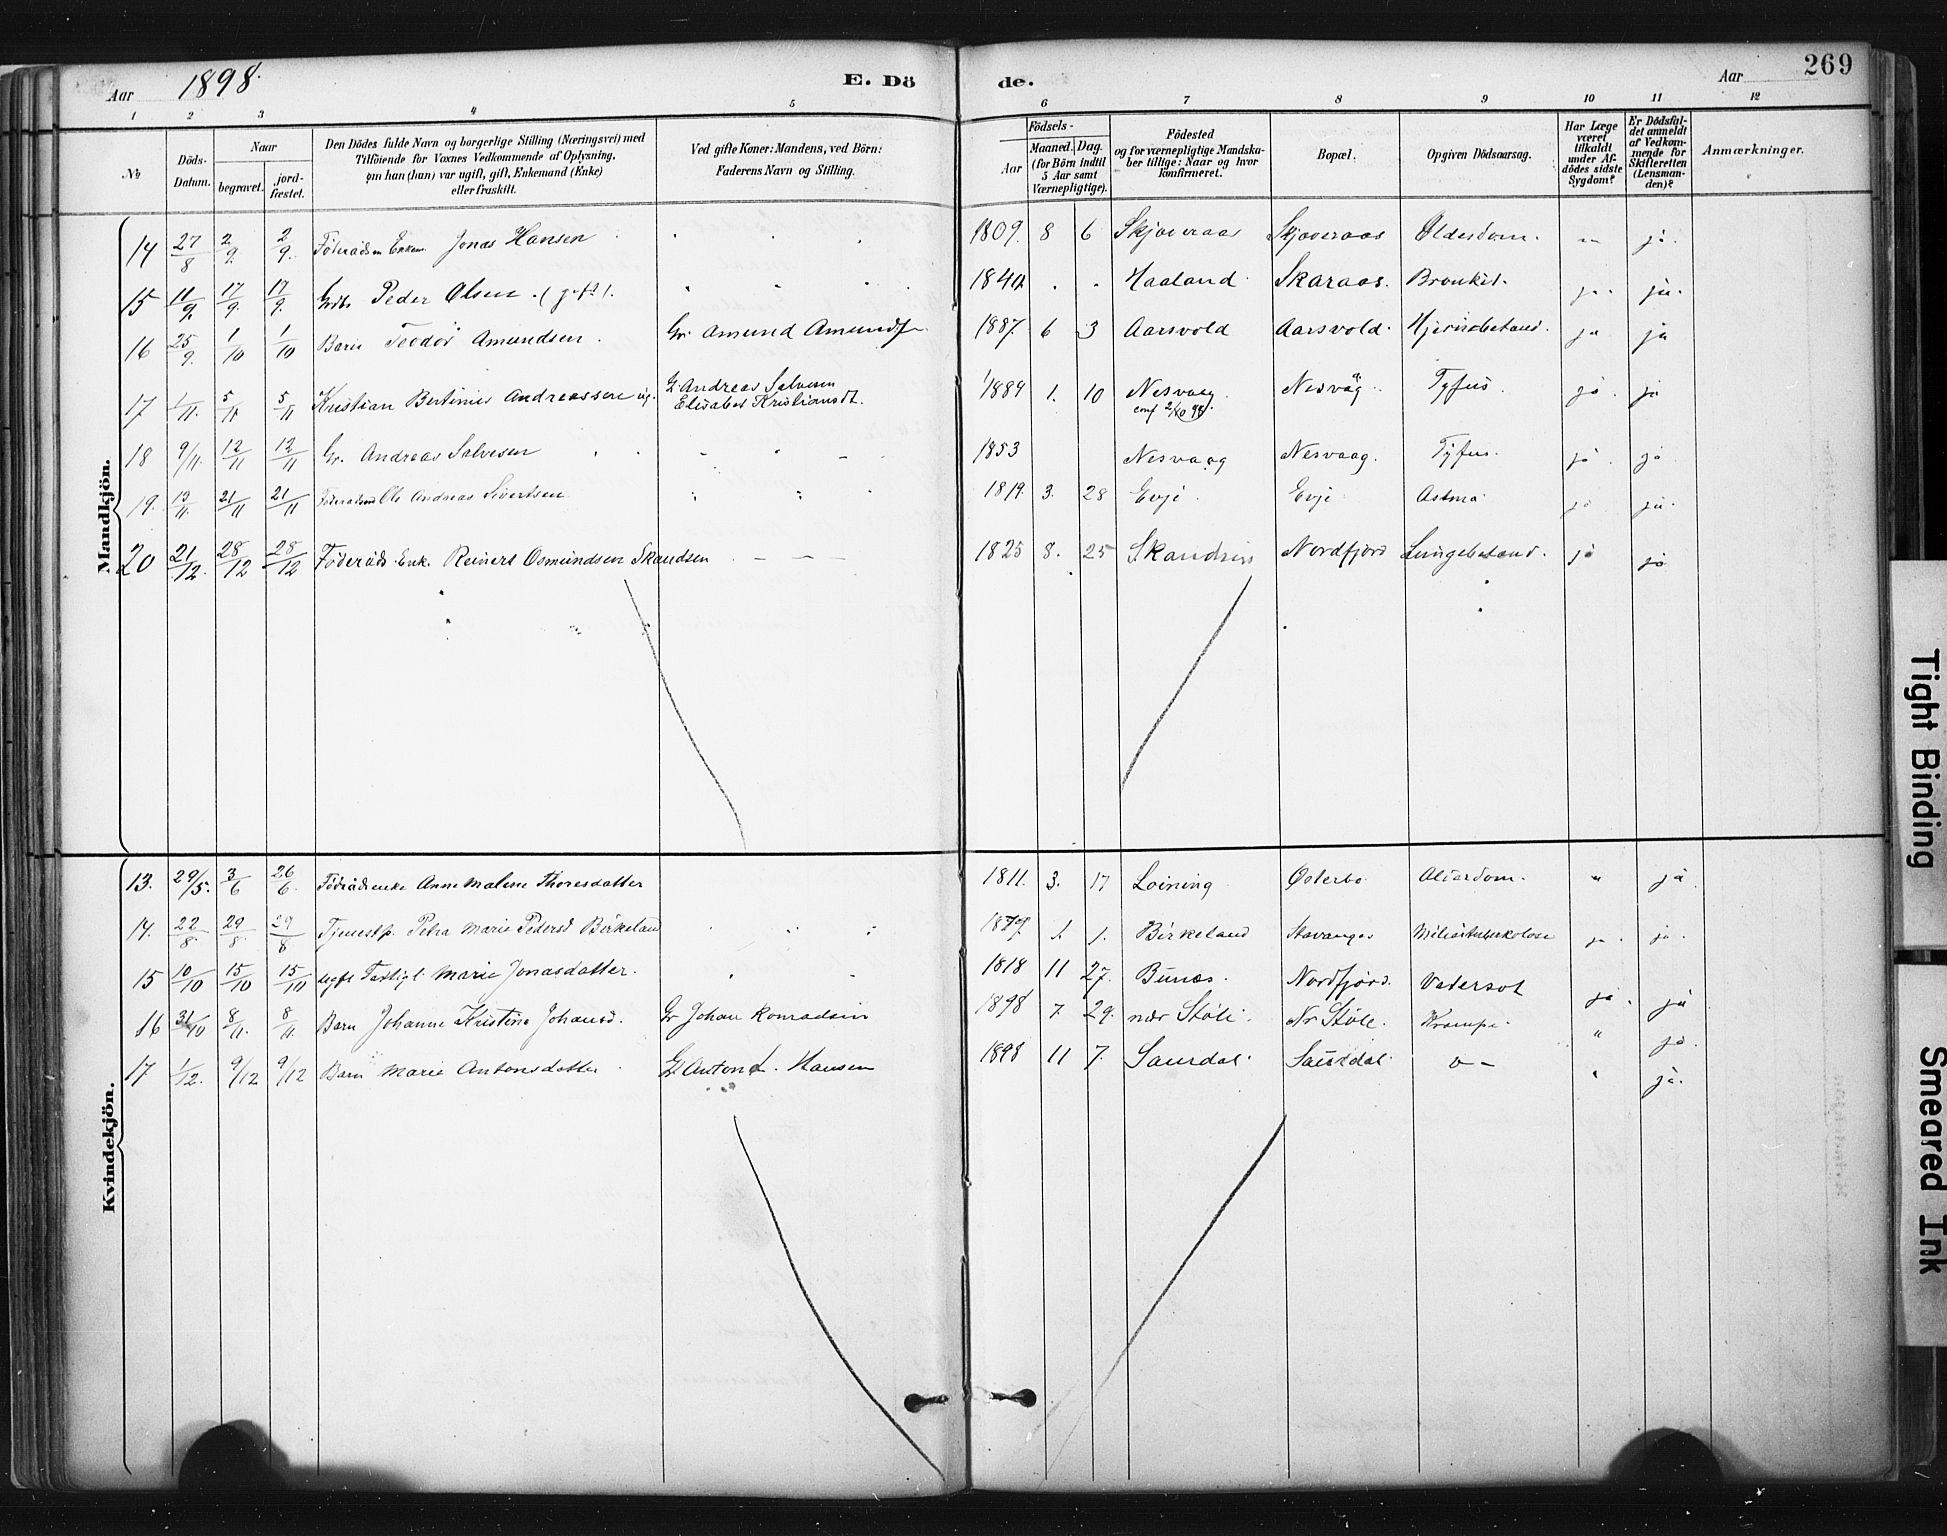 Aar 1898. E. Dö de. Aar 269
1 2 3 4 5 6 7 8 9 10 11 12
No
Döds-Datum.
Naar
begravet.
jord-fæstet.
Den Dödes fulde Navn og borgerlige Stilling (Næringsvei) med
Tilföiende for Voxnes Vedkommende af Oplysning,
om han (han) var ugift, gift, Enkemand (Enke)
eller fraskilt.
Ved gifte Koner: Mandens, ved Börn:
Faderens Navn og Stilling.
Födsels-
Aar
Maaned. Dag.
(for Börn indtil
5 Aar samt
Værnepligtige).
Födested
og for værnepligtige Mandska-
ber tillige: Naar og hvor
konfirmeret.
Bopæl.
Opgiven Dödsaarsag.
Har Læge
været
tilkaldt
under Af-
dödes sidste
Sygdom?
Er Dödsfal-
det anmeldt
af Vedkom-
mende for
Skifteretten
(Lensman-
den)?
Anmærkninger.
Mandkjön.
14 27/8 2/9 2/9 Föderådsm Enkem. Jonas Hansen 1809. 8 6 Skjæveraas Skjæveraas Olderdom. " ja.
15 11/9 17/9 17/9 Grdb. Peder Olsen (gift). 1840 Haaland Skaraas. Bronkit. ja. ja.
16 25/9 1/10 1/10 Barn Teodor Amundsen. Gr. Amund Amunds. 1887. 6 3 Aarsvold Aarsvold. Hjernebetænd. ja ja
17 1/11. 5/11 5/11 Kristian Bertinius Andreassen ug. G. Andreas Salvesen 1884 1. 10 Nesvaag Nesvåg. Tyfus. ja. ja
Elisabet Kristiansdt. conf 2/10 98.
18 9/11. 12/11 12/11 Gr. Andreas Salvesen 1853 Nesvaag Nesvaag. Tyfus. ja. ja
19. 13/11. 21/11 21/11 Föderaadsm Ole Andreas Sivertsen 1819. 3. 28 Evje Evje Astma ja ja.
20 21/12. 28/12 28/12 Föderåds. Enk. Reinert Osmundsen Skandsen — — — 1825 8. 25 Skandsen Nordfjord Lungebetænd. ja ja
Kvindekjön.
13. 29/5. 3/6 26/6. Föderådsenke Anne Malene Thoresdatter 1811. 3. 17 Loining Österbø Alderdom. " ja
14. 22/8. 29/8. 29/8 Tjenestp. Petra Marie Pedersd Birkeland 1879 1. 1. Birkeland Stavanger Miliærtuberkolose ja. ja.
15 10/10 15/10 15/10 ugft Fattigl. Marie Jonasdatter. 1818 11 27. Bunes. Nordfjord. Vatersot ja. ja
16 31/10 8/11. 8/11. Barn Johanne Kristine Johansd. Gr Johan Konradsen 1898 7. 29. nær Stöle. Nr Stöle. Krampe. " ja.
17 1/12. 9/12 9/12 Barn Marie Antonsdatter G. Anton L. Hansen 1898 11 7. Saurdal. Saurdal. o— " ja.
Tight Binding
Smeared Ink